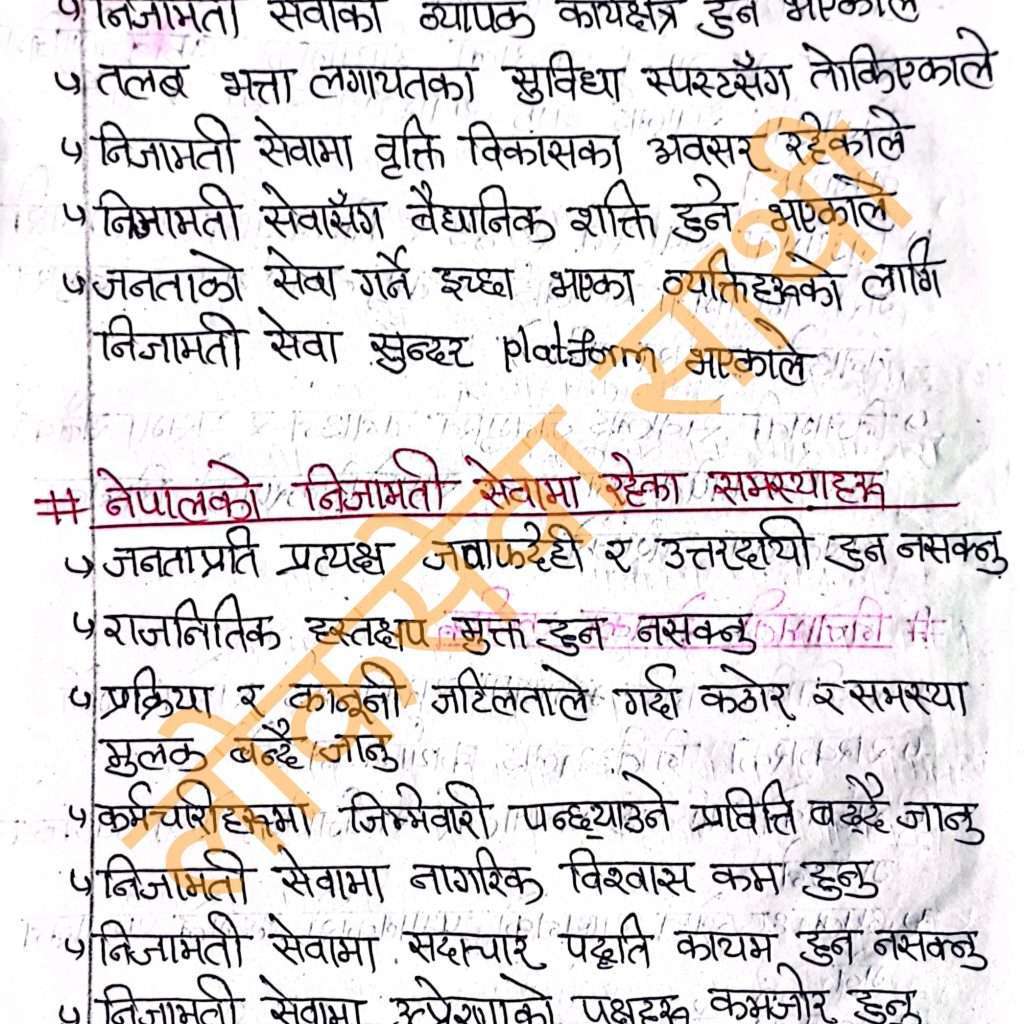 निजामती सेवाको व्यापक कार्यक्षेत्र हुन भएकाले
तलब भत्ता लगायतका सुविधा स्पस्टसँग तोकिएकाले
निजामती सेवामा वृत्ति विकासका अवसर रहेकाले
निजामती सेवासँग बैद्यानिक शक्ति हुने भएकाले
जनताको सेवा गर्ने इच्छा भएका व्यक्तिहरूको लागि
निजामती सेवा सुन्दर platform भएकाले
# नेपालको निजामती सेवामा रहेका समस्याहरू
जनताप्रति प्रत्यक्ष जवाफदेही र उत्तरदायी हुन नसक्नु
राजनितिक हस्तक्षप मुक्त हुन नसक्नु
प्रक्रिया र कानूनी जटिलताले गर्दा कठोर र समस्या
मुलक बन्दै जानु
कर्मचारीहरूमा जिम्मेवारी पन्छ्याउने प्रवित्ति बढ्दै जानु
निजामती सेवामा नागरिक विश्वास कम हुनु
निजामती सेवामा सदाचार पद्धति कायम हुन नसक्नु
निजामती सेवामा उत्प्रेरणाको पक्षहरू कमजोर हुनु
लोकसेवा सारथी